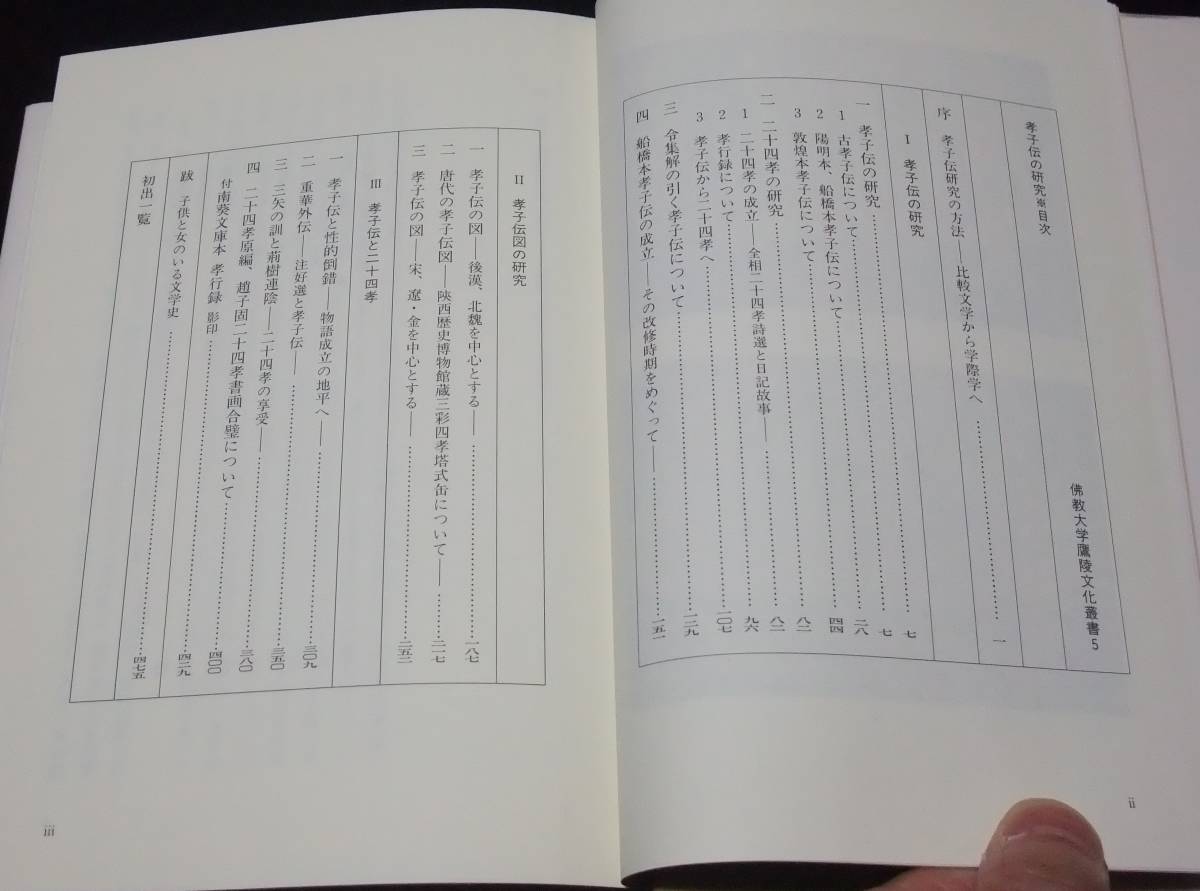 佛教大学鷹陵文化叢書5
孝子伝の研究※目次
序 孝子伝研究の方法——比較文学から学際学へ……一
Ⅰ 孝子伝の研究
一 孝子伝の研究……七
1 古孝子伝について……七
2 陽明本、船橋本孝子伝について……二八
3 敦煌本孝子伝について……四四
二 二十四孝の研究……八二
1 二十四孝の成立——全相二十四孝詩選と日記故事——……八二
2 孝行録について……九六
3 孝子伝から二十四孝へ……一〇七
三 令集解の引く孝子伝について……一二九
四 船橋本孝子伝の成立——その改修時期をめぐって——……一五一
ii
Ⅱ 孝子伝図の研究
一 孝子伝の図——後漢、北魏を中心とする——……一八七
二 唐代の孝子伝図——陝西歴史博物館蔵三彩四孝塔式缶について——……二一七
三 孝子伝の図——宋、遼・金を中心とする——……二五二
Ⅲ 孝子伝と二十四孝
一 孝子伝と性的倒錯——物語成立の地平へ——……三〇九
二 重華外伝——注好選と孝子伝——……三五〇
三 三矢の訓と荊樹連陰——二十四孝の享受——……三八〇
四 二十四孝原編、趙子固二十四孝書画合璧について……四〇〇
付 南葵文庫本 孝行録 影印……四二九
跋 子供と女のいる文学史……四七五
初出一覧
iii